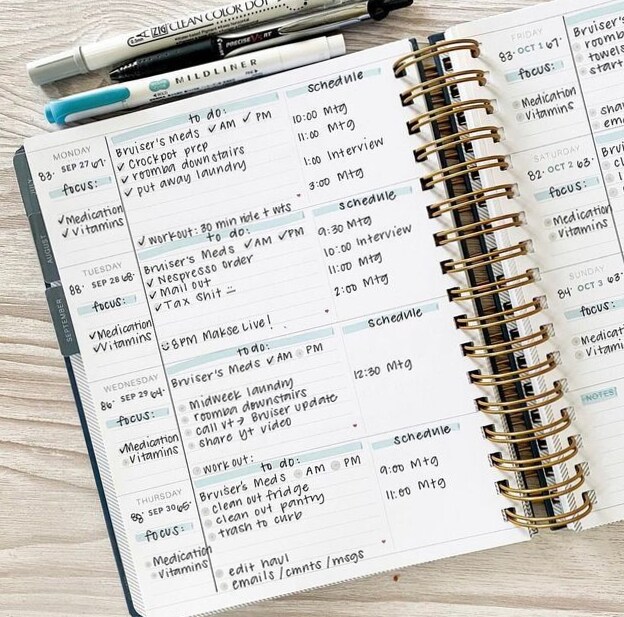 ZIG CLEAN COLOR DOT
PRECISE V5 RT
MILDLINER
AUGUST
SEPTEMBER
MONDAY
83° SEP 27 67°
focus:
✓Medication
✓Vitamins
to do:
Bruiser's Meds ✓AM ✓PM
✓ Crockpot prep
✓ roomba downstairs
✓ put away laundry
✓workout: 30 min ride + wts
schedule
10:00 Mtg
11:00 Mtg
1:00 Interview
3:00 Mtg
TUESDAY
88° SEP 28 68°
focus:
✓Medication
✓Vitamins
to do:
Bruiser's Meds ✓AM ✓PM
✓ Nespresso order
✓ Mail out
✓ Tax shit
8PM Makse Live!
schedule
9:30 Mtg
10:00 Interview
11:00 Mtg
2:00 Mtg
WEDNESDAY
86° SEP 29 64°
focus:
✓Medication
Vitamins
to do:
Bruiser's Meds ✓AM PM
midweek laundry
roomba downstairs
call vt → Bruiser update
share yt video
workout:
schedule
12:30 Mtg
THURSDAY
88° SEP 30 65°
focus:
Medication
Vitamins
to do:
Bruiser's Meds AM PM
clean out fridge
clean out pantry
trash to curb
edit haul
emails/cmnts/msgs
schedule
9:00 Mtg
11:00 Mtg
FRIDAY
83° OCT 1 67°
focus:
Medication
Vitamins
Bruiser's
roomba
towels
start
SATURDAY
82° OCT 2 63°
focus:
Medication
Vitamins
SUNDAY
84° OCT 3 63°
focus:
NOTES